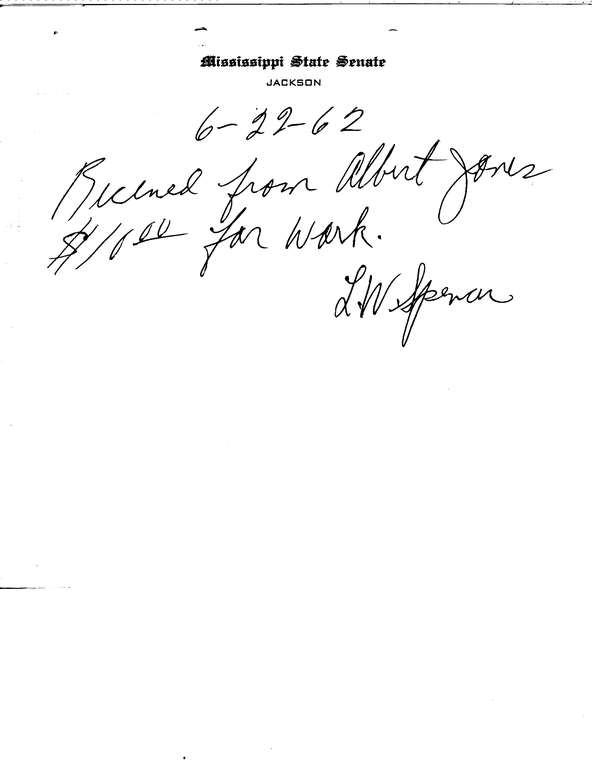 Mississippi State Senate
JACKSON
6-22-62
Received from Albert Jones
$10.00 for work.
L.W. Spencer